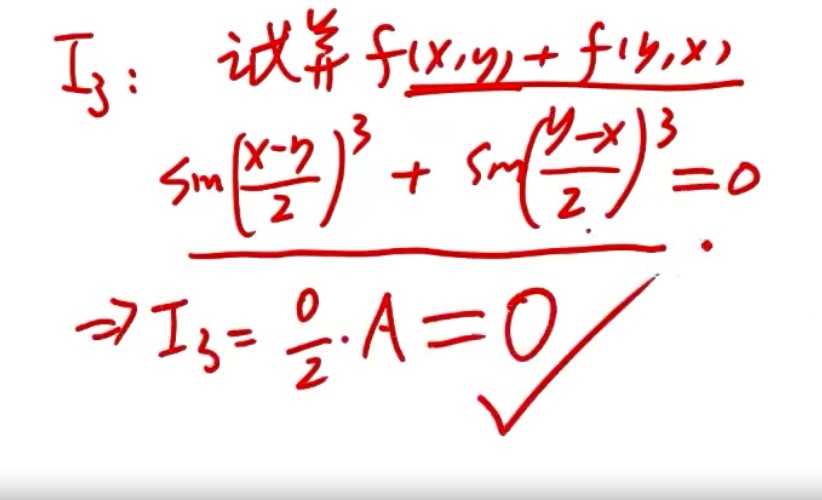 I₃: 试算 f(x,y) + f(y,x)
sin((x-y)/2)³ + sin((y-x)/2)³ = 0.
⇒ I₃ = 0/2 · A = 0 ✓